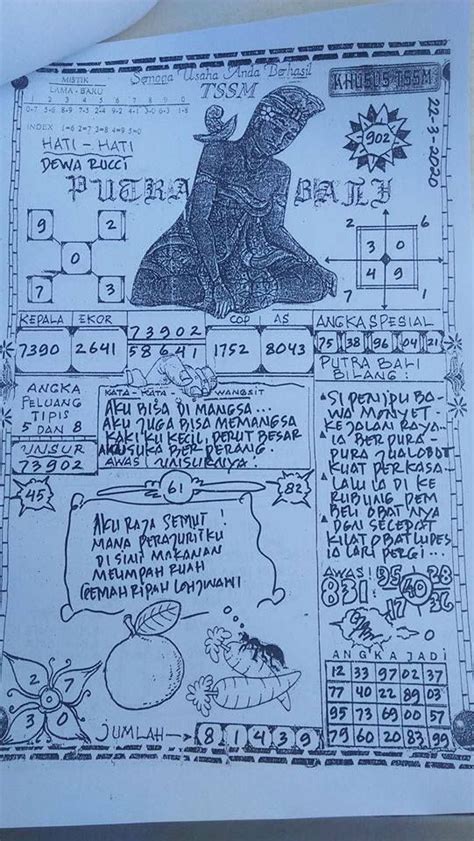 Semoga Usaha Anda Berhasil
TSSM
KHUSUS TSSM
22-3-2020
MISTIK
LAMA - BARU
1 2 3 4 5 6 7 8 9 0
INDEX 1=6 2=7 3=8 4=9 5=0
HATI - HATI
DEWA RUCCI
902
PUTRA BALI
9 2
0
7 3
2 6
3 0
4 9
7 1
KEPALA EKOR
7390 2641
73902
58641
COP AS
1752 8043
ANGKA SPESIAL
75 38 96 04 21
ANGKA
PELUANG
TIPIS
5 DAN 8
UNSUR
73902
KATA - KATA WANGSIT
AKU BISA DI MANGSA...
AKU JUGA BISA MEMANGSA
KAKI KU KECIL, PERUT BESAR
AKUSUKA BERPERANG.
AWAS UNISURNYA:
PUTRA BALI
BILANG:
SI PENIPU BA-
WA MONYET-
KEJALAN RAYA..
IA BERPURA-
PURA JUALOBAT
KUAT PERKASA..
LALU IA DI KE
RUBUNG DEM
BELI OBAT NYA
DGN SECEPAT
KILAT OBAT LUPES
IA LARI PERGI...
45
61
82
AKU RAJA SEMUT!
MANA PERAJURITKU
DI SINI MAKANAN
MELIMPAH RUAH
GEMAH RIPAH LOHJINAWI
AWAS! 35 28
831: 40 26
17
0
2 7
3 0
JUMLAH → 8 1 4 3 9
ANGKA JADI
12 33 97 02 37
77 40 22 89 03
95 73 69 00 57
79 60 20 83 99